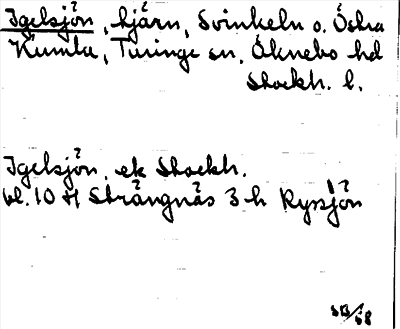 Igelsjön, tjärn, Svinkeln o. Östra
Kumla, Turinge sn, Öknebo hd
Stockh. l.
Igelsjön, ek Stockh.
bl. 10 H Strängnäs 3 h Ryssjön